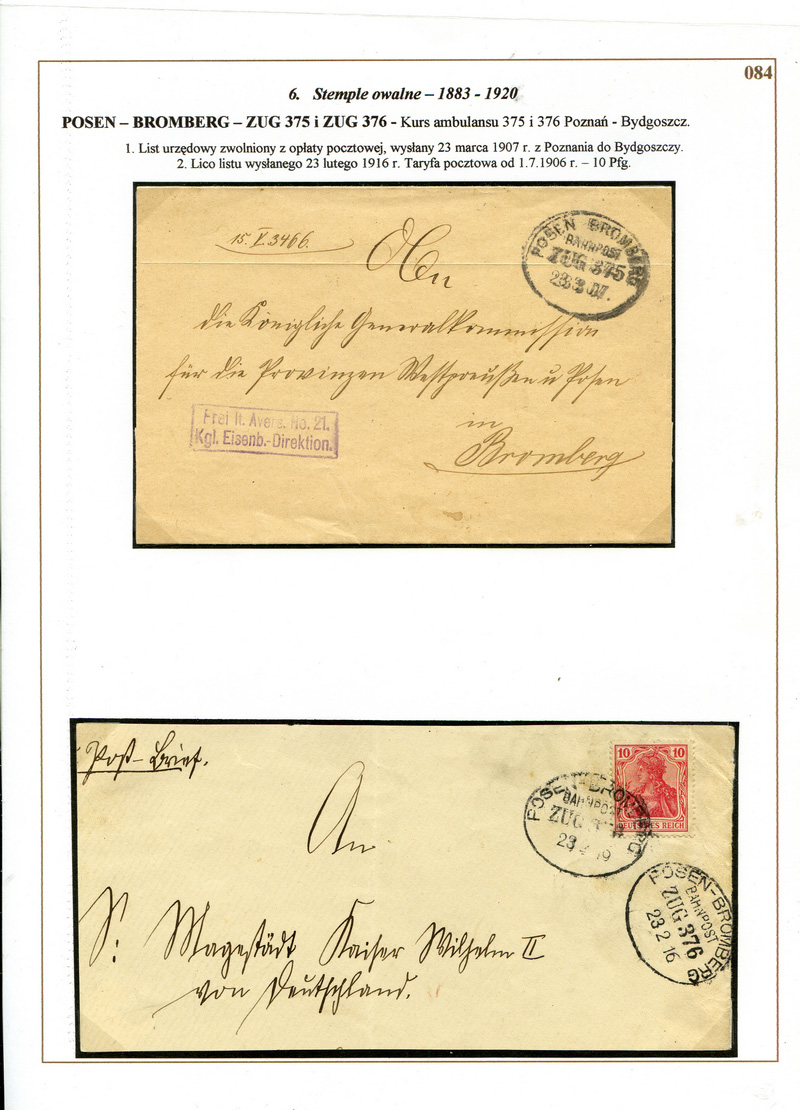 084
6. Stemple owalne – 1883 - 1920
POSEN – BROMBERG – ZUG 375 i ZUG 376 - Kurs ambulansu 375 i 376 Poznań - Bydgoszcz.
1. List urzędowy zwolniony z opłaty pocztowej, wysłany 23 marca 1907 r. z Poznania do Bydgoszczy.
2. Lico listu wysłanego 23 lutego 1916 r. Taryfa pocztowa od 1.7.1906 r. – 10 Pfg.
15. V. 3466.
An
POSEN BROMBERG
BAHNPOST
ZUG 375
23 3 07.
die Königliche Generalkommission
für die Provinzen Westpreußen u Posen
in
Bromberg
Frei lt. Avers. No. 21.
Kgl. Eisenb.-Direktion.
Post-Brief.
10 10
DEUTSCHES REICH
POSEN-BROMBERG
BAHNPOST
ZUG
23
An
POSEN-BROMBERG
BAHNPOST
ZUG 376
23 2 16
S: Magestädt Kaiser Wilhelm II
von Deutschland.